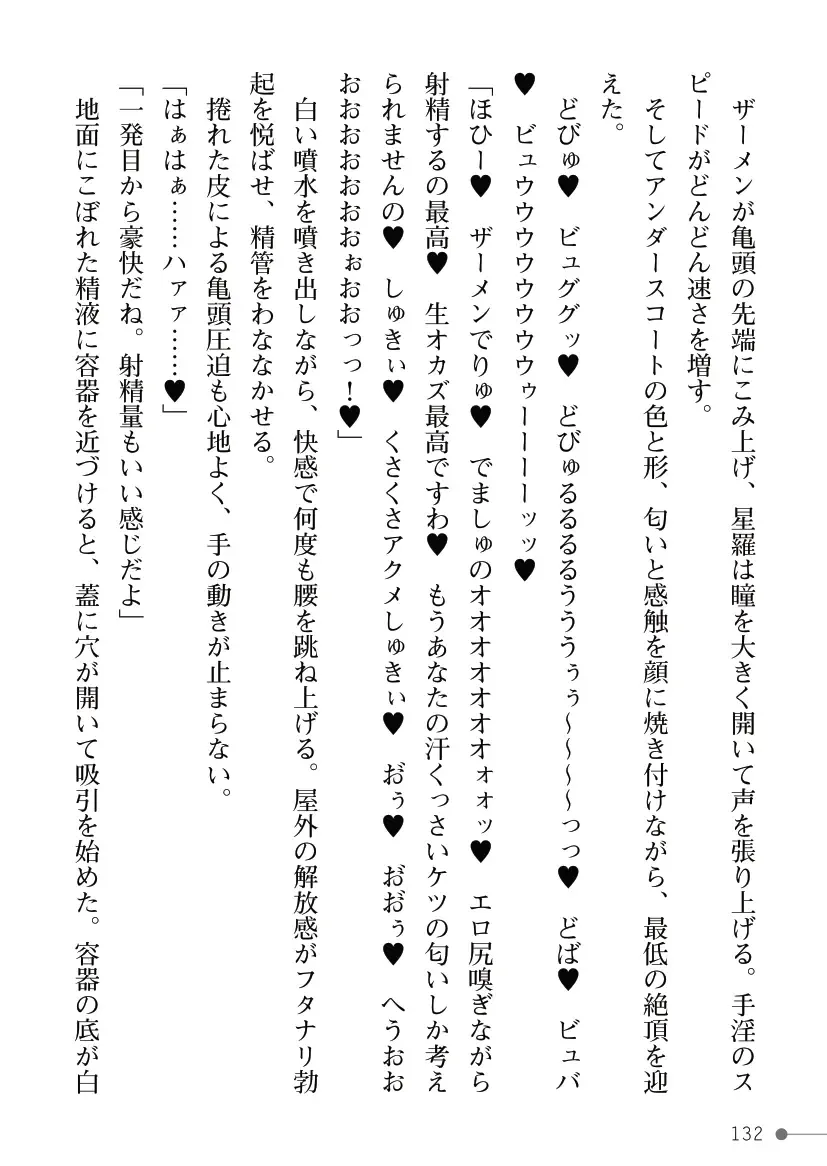 ザーメンが亀頭の先端にこみ上げ、星羅は瞳を大きく開いて声を張り上げる。手淫のス
ピードがどんどん速さを増す。
　そしてアンダースコートの色と形、匂いと感触を顔に焼き付けながら、最低の絶頂を迎
えた。
　どびゅ♥　ビュググッ♥　どびゅるるるるうううぅぅ～～～～っっ♥　どば♥　ビュバ
♥　ビュウウウウウウウウウゥーーーーッッ♥
「ほひー♥　ザーメンでりゅ♥　でましゅのオオオオオオオオォォッ♥　エロ尻嗅ぎながら
射精するの最高♥　生オカズ最高ですわ♥　もうあなたの汗くっさいケツの匂いしか考え
られませんの♥　しゅきぃ♥　くさくさアクメしゅきぃ♥　お゛ぅ♥　お゛お゛ぅ♥　へうおお
おおおおおおおぉおおっっ！♥」
　白い噴水を噴き出しながら、快感で何度も腰を跳ね上げる。屋外の解放感がフタナリ勃
起を悦ばせ、精管をわななかせる。
　捲れた皮による亀頭圧迫も心地よく、手の動きが止まらない。
「はぁはぁ……ハァァ……♥」
「一発目から豪快だね。射精量もいい感じだよ」
　地面にこぼれた精液に容器を近づけると、蓋に穴が開いて吸引を始めた。容器の底が白
132